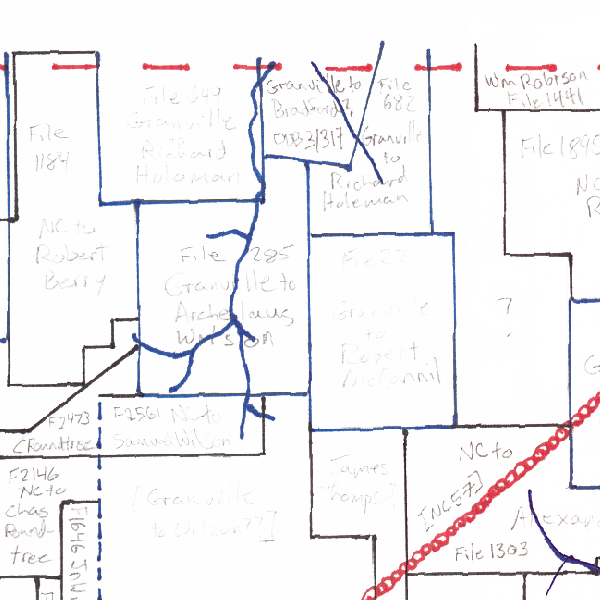 File
1184
NC to
Robert
Berry
File 649
Granville
to
Richard
Holoman
Granville to
Bradford?,
ODB 3/317
File
682
Granville
to
Richard
Holeman
Wm Robrson
File 1441
File 1895
NC
File 285
Granville to
Archelaus
Wilson
File 22
Granville
to
Robert
McConnil
?
G
F2473
CRoundtree
F2561 NC to
Samuel Wilson
F2146
NC to
Chas
Round-
tree
F1646 Jn W
[Granville
to
James
Thompson
NC to
[NC57]
Alexan
File 1303